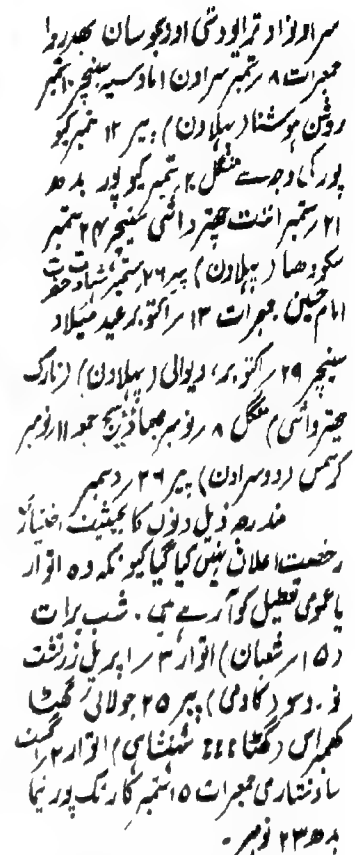 سراون اد تریودشی اودیوسان بھدروا
جمعرات ۸ ستمبر سراون اماوسیہ سنیچر ۱۰ ستمبر
روشن ہوشنا (پہلا دن) پیر ۱۲ ستمبر کیو
پور کی وجہ سے منگل ۲۰ ستمبر کیو پور بدھ
۲۱ ستمبر اننت چتر داشی سنیچر ۲۴ ستمبر
سکودھا (پہلا دن) پیر ۲۶ ستمبر شہادت حضرت
امام حسین جمعرات ۱۳ اکتوبر عید میلاد
سنیچر ۲۹ اکتوبر، دیوالی (پہلا دن) (نارک
چتر داشی) منگل ۸ نومبر بھائی بیج جمعہ ۱۱ نومبر
کرسمس (دوسرا دن) پیر ۲۶ دسمبر
مندرجہ ذیل دنوں کا بحیثیت اختیاری
رخصت اعلان نہیں کیا گیا کیونکہ وہ اتوار
یا عمومی تعطیل کو آ رہے ہیں۔ شب برات
(۱۵ شعبان) اتوار ۳ اپریل زرتشت
نو۔ دسو (کادمی) پیر ۲۵ جولائی گھٹا
کھمراس (گھٹا شہنشاہی) اتوار ۲ اگست
ساونتاری جمعرات ۱۵ ستمبر کارتک پورنیما
بدھ ۲۳ نومبر۔